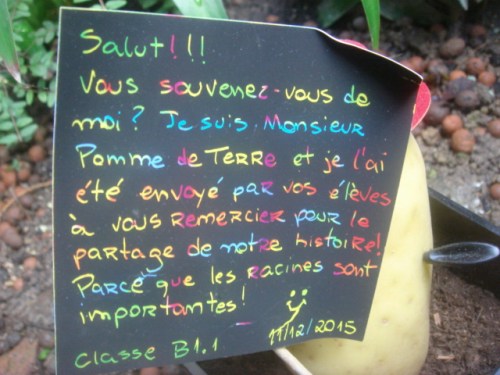 Salut!!!
Vous souvenez-vous de
moi? Je suis Monsieur
Pomme de Terre et je l'ai
été envoyé par vos élèves
à vous remercier pour le
partage de notre histoire!
Parce que les racines sont
importantes!
11/12/2015
classe B1.1